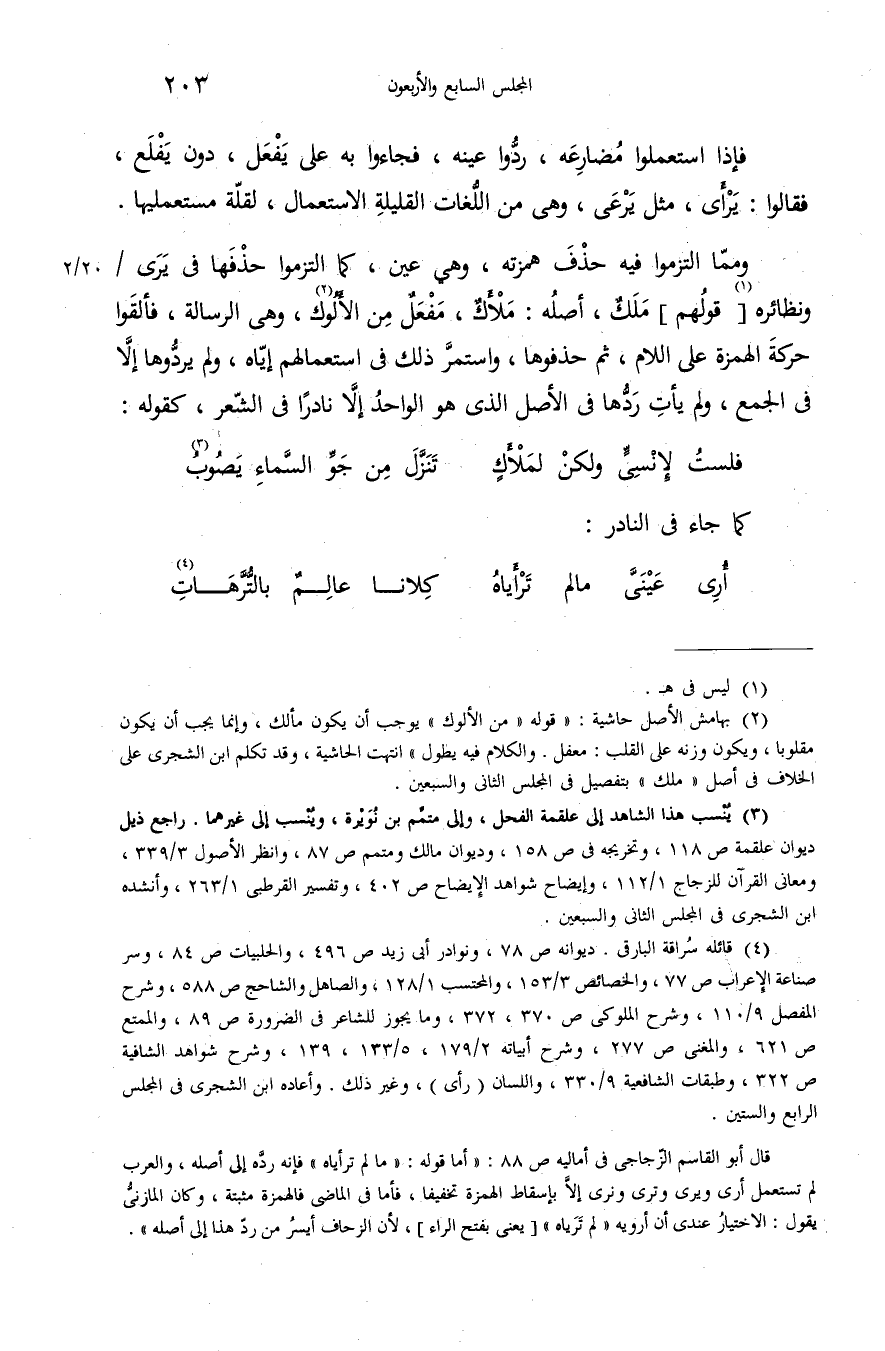 المجلس السابع والأربعون ٢٠٣
فإذا استعملوا مُضارِعَه ، ردُّوا عينه ، فجاءوا به على يَفْعَل ، دون يَفْلَع ،
فقالوا : يَرْأَى ، مثل يَرْعَى ، وهى من اللُّغات القليلةِ الاستعمال ، لقلّة مستعمليها .
وممّا التزموا فيه حذْفَ همزته ، وهي عين ، كما التزموا حذْفَها فى يَرَى / ٢/٢٠
ونظائره [ (١) قولُهم ] مَلَكٌ ، أصلُه : مَلْأَكٌ ، مَفْعَلٌ مِن الأَلُوك (٢) ، وهى الرسالة ، فألقَوا
حركةَ الهمزة على اللام ، ثم حذفوها ، واستمرَّ ذلك فى استعمالهم إيّاه ، ولم يردُّوها إلَّا
فى الجمع ، ولم يأتِ رَدُّها فى الأصل الذى هو الواحدُ إلَّا نادرًا فى الشّعر ، كقوله :
فلستُ لِإنْسِىٍّ ولكنْ لمَلْأَكٍ تَنَزَّلَ مِن جَوِّ السَّماءِ يَصُوبُ (٣)
كما جاء فى النادر :
أُرِى عَيْنَىَّ مالم تَرْأَياهُ كِلانـــا عالِـــمٌ بالتُّرَّهَـــاتِ (٤)
(١) ليس فى هـ .
(٢) بهامش الأصل حاشية : « قوله « من الألوك » يوجب أن يكون مألك ، وإنما يجب أن يكون
مقلوبا ، ويكون وزنه على القلب : معفل . والكلام فيه يطول » انتهت الحاشية ، وقد تكلم ابن الشجرى على
الخلاف فى أصل « ملك » بتفصيل فى المجلس الثانى والسبعين .
(٣) يُنْسب هذا الشاهد إلى علقمة الفحل ، وإلى متمِّم بن نُوَيْرة ، ويُنْسب إلى غيرهما . راجع ذيل
ديوان علقمة ص ١١٨ ، وتخريجه فى ص ١٥٨ ، وديوان مالك ومتمم ص ٨٧ ، وانظر الأصول ٣٣٩/٣ ،
ومعانى القرآن للزجاج ١١٢/١ ، وإيضاح شواهد الإيضاح ص ٤٠٢ ، وتفسير القرطبى ٢٦٣/١ ، وأنشده
ابن الشجرى فى المجلس الثانى والسبعين .
(٤) قائله سُراقة البارقى . ديوانه ص ٧٨ ، ونوادر أبى زيد ص ٤٩٦ ، والحلبيات ص ٨٤ ، وسر
صناعة الإعراب ص ٧٧ ، والخصائص ١٥٣/٣ ، والمحتسب ١٢٨/١ ، والصاهل والشاحج ص ٥٨٨ ، وشرح
المفصل ١١٠/٩ ، وشرح الملوكى ص ٣٧٠ ، ٣٧٢ ، وما يجوز للشاعر فى الضرورة ص ٨٩ ، والممتع
ص ٦٢١ ، والمغنى ص ٢٧٧ ، وشرح أبياته ١٧٩/٢ ، ١٣٣/٥ ، ١٣٩ ، وشرح شواهد الشافية
ص ٣٢٢ ، وطبقات الشافعية ٣٣٠/٩ ، واللسان ( رأى ) ، وغير ذلك . وأعاده ابن الشجرى فى المجلس
الرابع والستين .
قال أبو القاسم الزّجاجى فى أماليه ص ٨٨ : « أما قوله : « ما لم ترأياه » فإنه ردَّه إلى أصله ، والعرب
لم تستعمل أرى ويرى وترى ونرى إلاَّ بإسقاط الهمزة تخفيفا ، فأما فى الماضى فالهمزة مثبتة ، وكان المازنىُّ
يقول : الاختيارُ عندى أن أرويه « لم تَرَياه » [ يعنى بفتح الراء ] ، لأن الزحاف أيسرُ من ردّ هذا إلى أصله » .